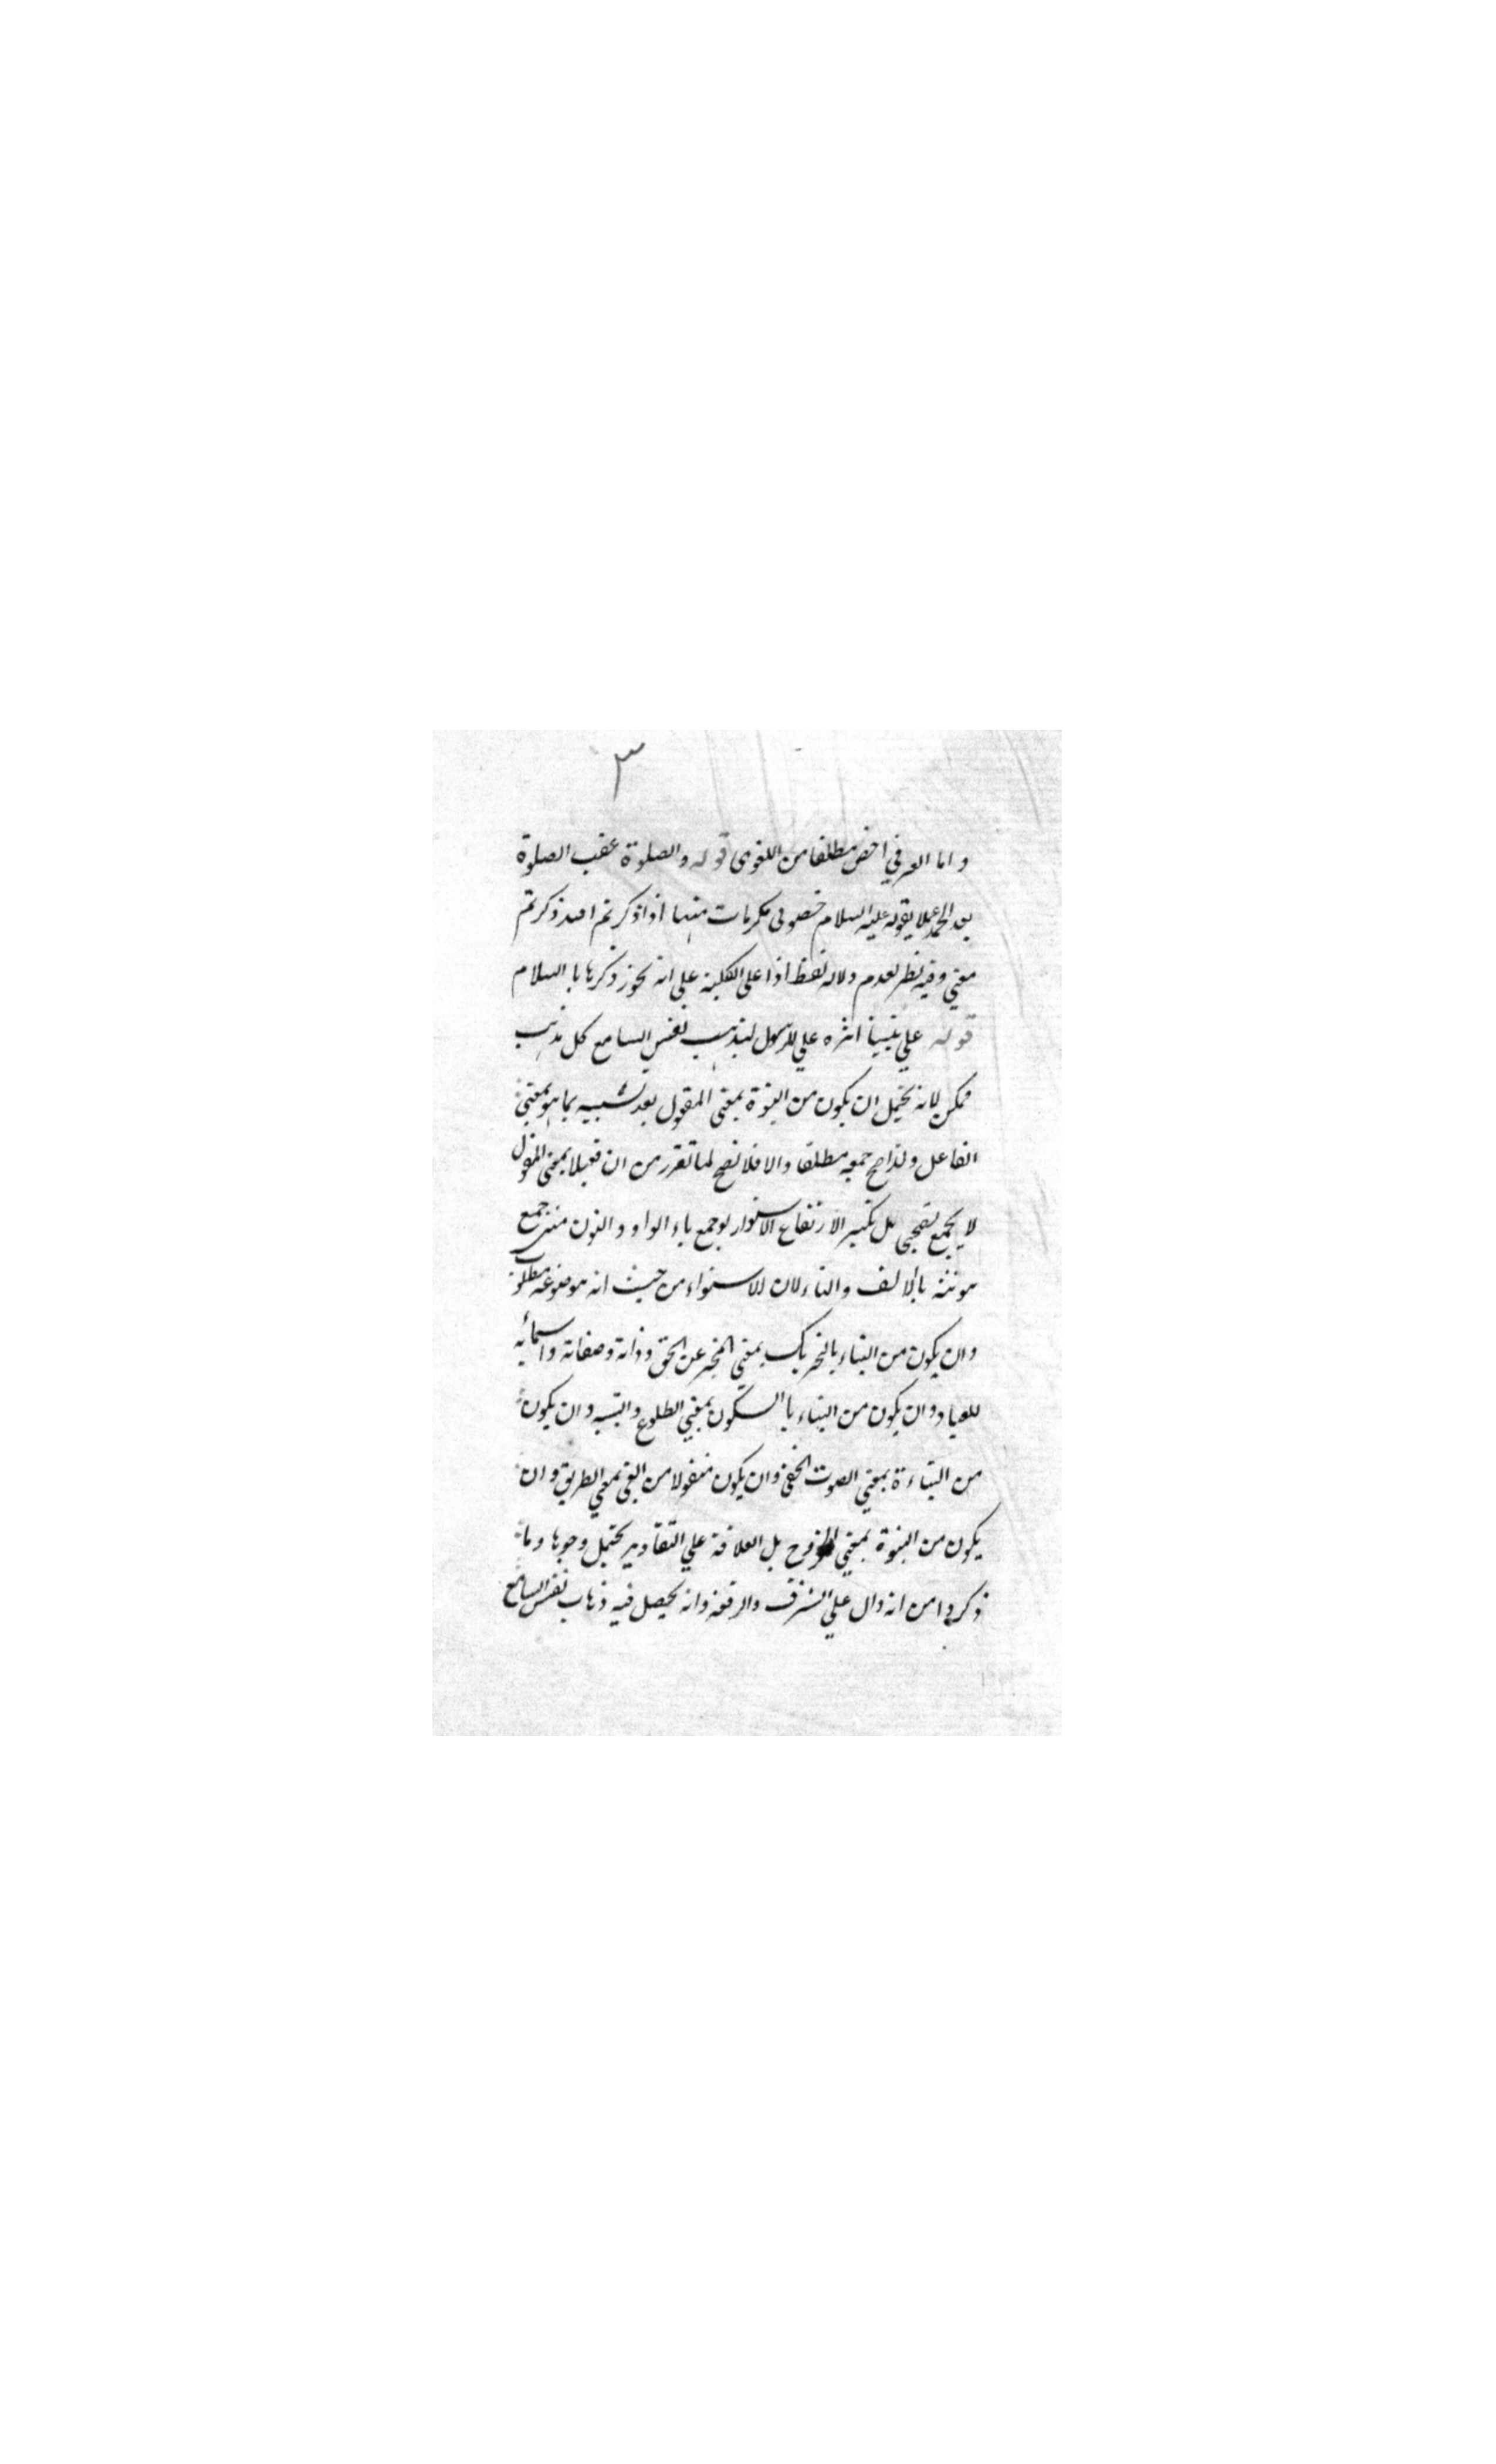 ٣
واما العرفي اخص مطلقا من اللغوى قوله والصلوة عقب الصلوة
بعد الحمد عملا بقوله عليه السلام خصونى بكرمات منها اذا ذكرتم الله ذكرتم
معي وفيه نظر لعدم دلالة لفظ اذا على الكلية على انه يجوز ذكرها با السلام
قوله علي نبينا اثره علي الرسول ليذهب نفس السامع كل مذهب
ممكن لانه يحتمل ان يكون من النبوة بمعنى المفعول بعد تشبيه بما هو بمعنى
الفاعل ولذا صح جمعه مطلقا والا فلا تصح لما تقرر من ان فعيلا بمعنى المفعول
لا يجمع تصحيح بل تكسير الارتفاع الاستواء لو جمع باء الواو والنون جمع
مونثه بالالف والتاء لان الاستواء من حيث انه موضوعه
وان يكون من النباء بالتحريك بمعنى المخبر عن الحق وذاته وصفاته واسمائه
للعباد وان يكون من النباء با السكون بمعني الطلوع والتنبيه وان يكون
من النباءة بمعني الصوت الخفي وان يكون منقولا من النبي بمعني الطريق وان
يكون من النبوة بمعني الخروج بل العلاقة علي التقادير يحتمل وجوها وما
ذكروا من انه دال علي الشرف والرفعة وانه يحصل فيه ذهاب نفس السامع